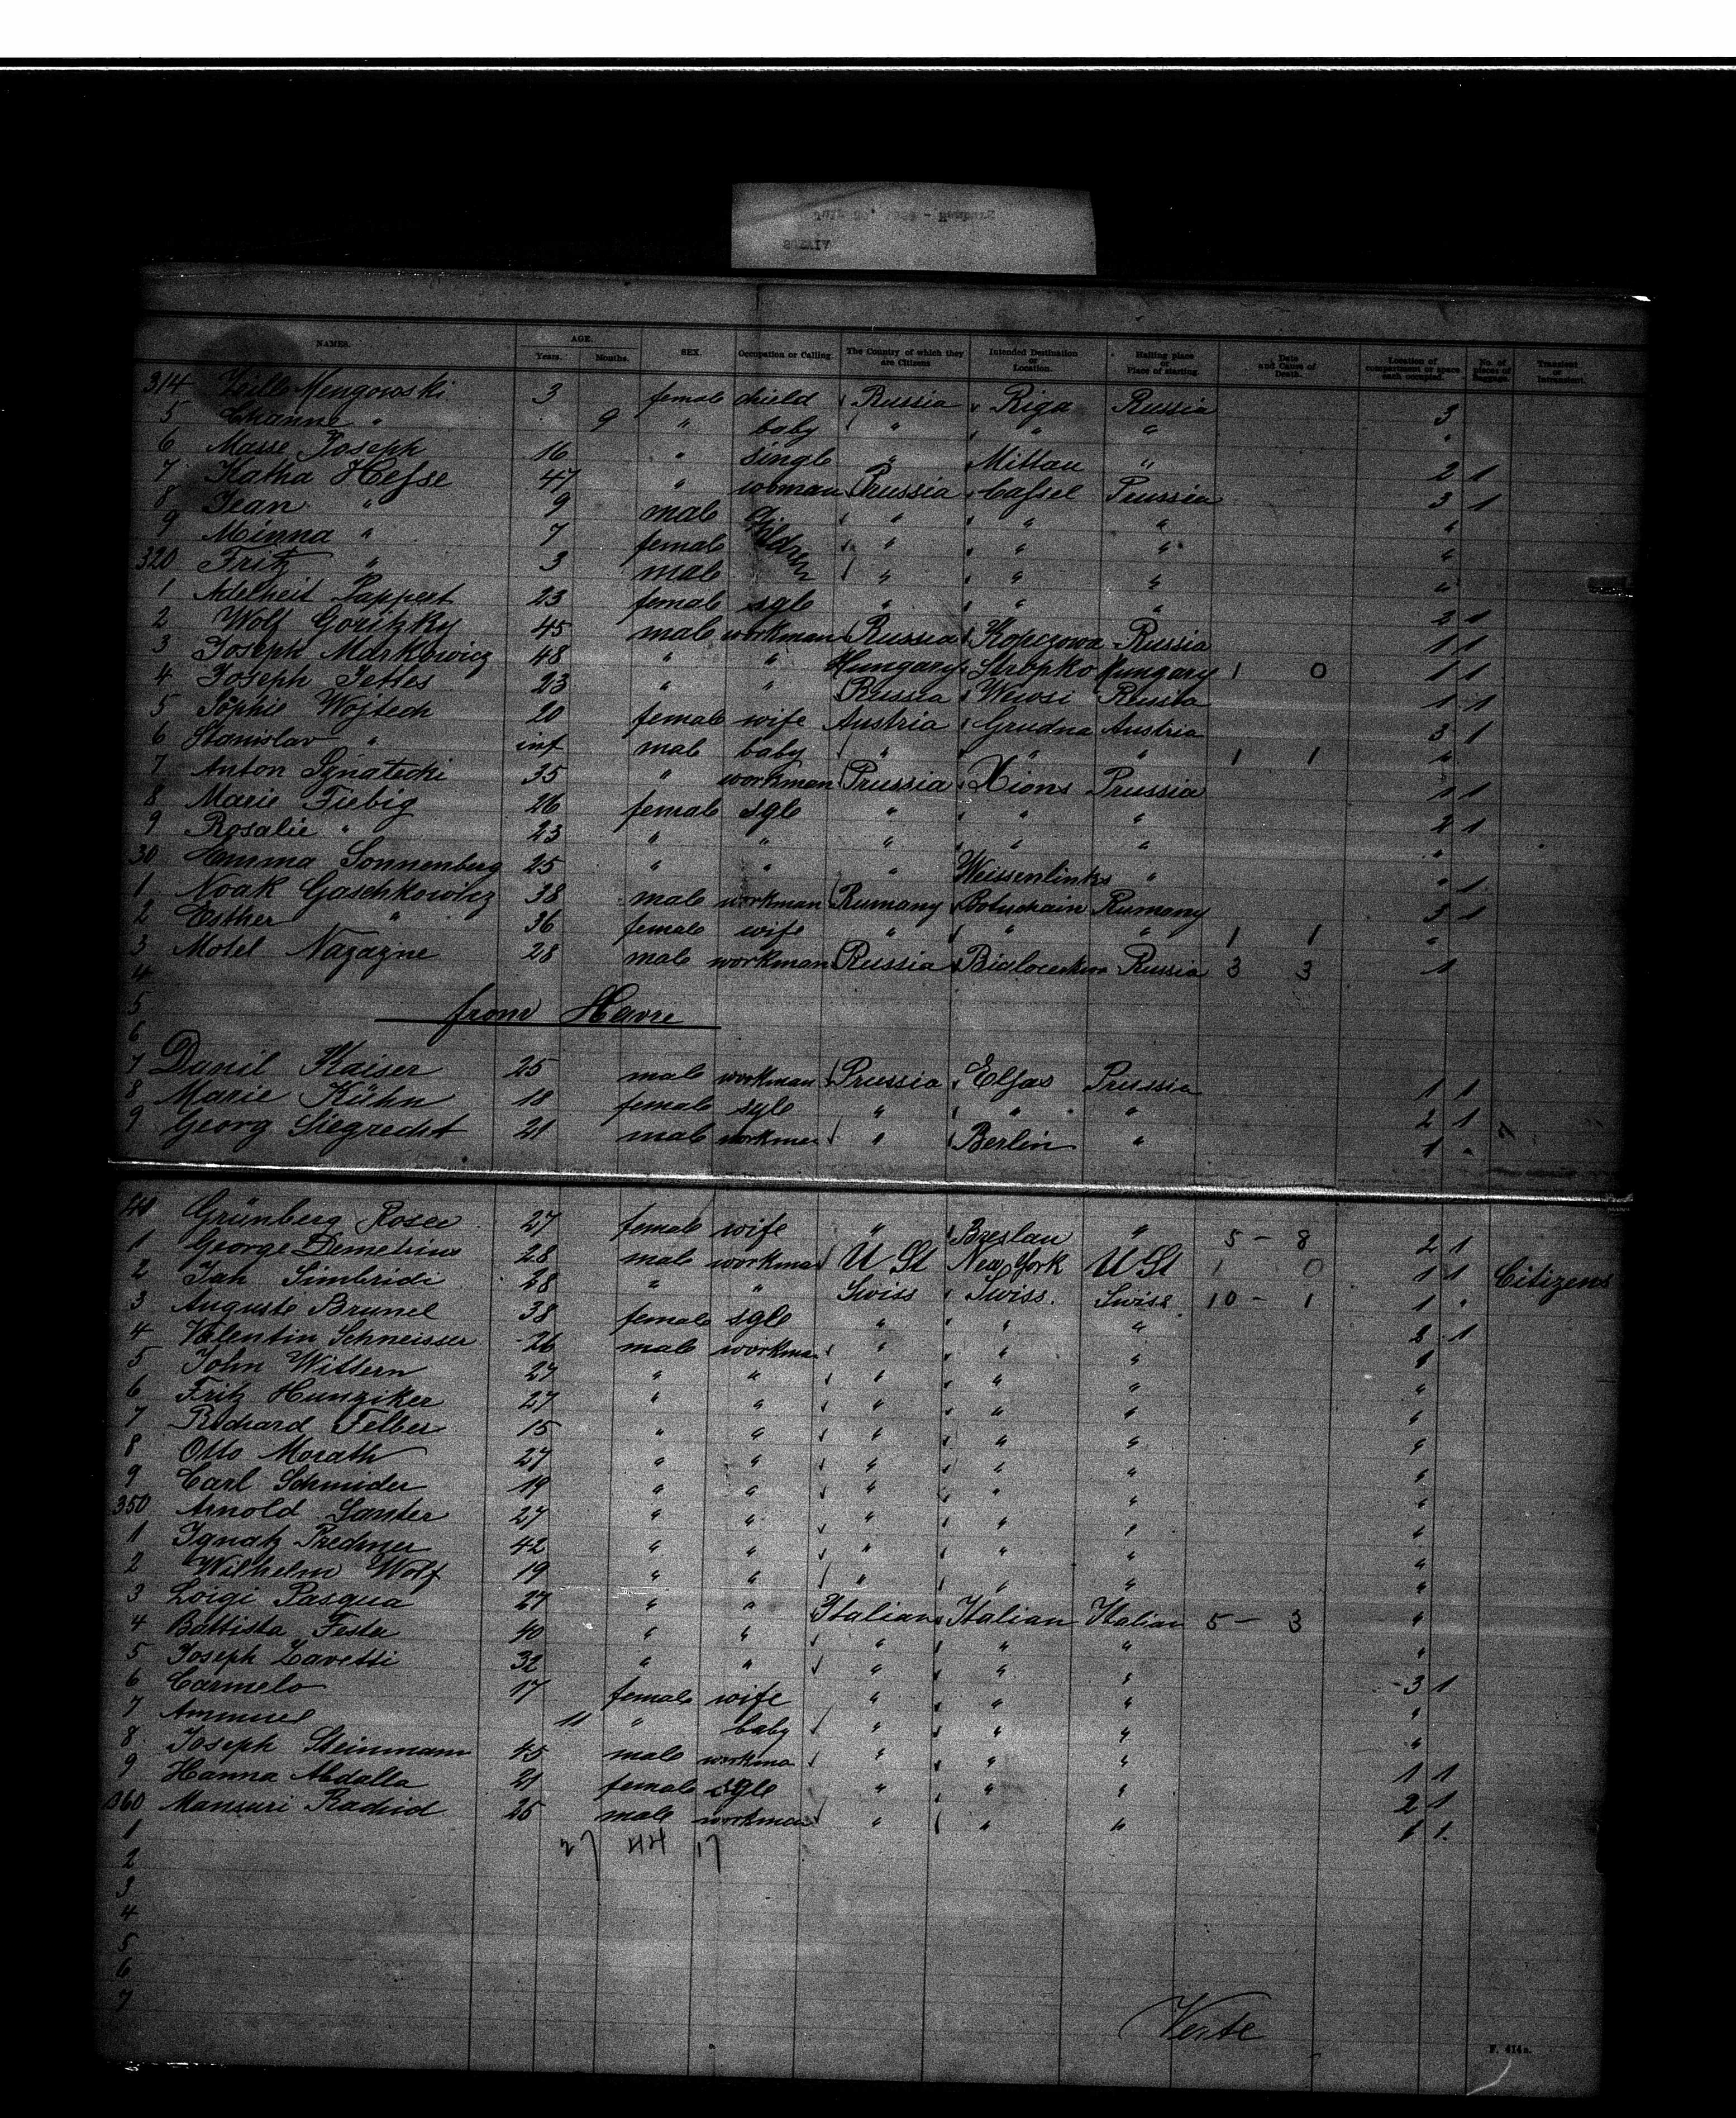 NAMES. AGE. SEX. Occupation or Calling. The Country of which they are Citizens Intended Destination or Location. Halting place or Place of starting. Date and Cause of Death. Location of compartment or space each occupied. No. of pieces of Baggage. Transient or Intransient.
Years. Months.
314 Mengowski 3 female child Russia Riga Russia 3
5 Channe " 9 " baby " " " "
6 Masse Joseph 16 " single " Mittau " 2 1
7 Katha Hesse 47 " woman Prussia Cassel Prussia 3 1
8 Jean " 9 male children " " " "
9 Minna " 7 female " " " "
320 Fritz " 3 male " " " "
1 Adelheit Pappert 23 female sgle " " " 2 1
2 Wolf Goritzky 45 male workman Russia Kopczowa Russia 1 1
3 Joseph Markowicz 48 " " Hungary Stropko Hungary 1 0 1 1
4 Joseph Jettes 23 " " Russia Russia 1 1
5 Sophie Wojtech 20 female wife Austria Grudna Austria 3 1
6 Stanislav " inf male baby " " " 1 1 "
7 Anton Ignatecki 35 " workman Prussia Xions Prussia 1 1
8 Marie Fiebig 26 female sgle " " " 2 1
9 Rosalie " 23 " " " " " "
30 Hemma Sonnenberg 25 " " " Weissenlinks " " 1
1 Noak Gaschkowicz 38 male workman Rumany Botuschain Rumany 3 1
2 Esther " 36 female wife " " " 1 1 "
3 Motel Nazazne 28 male workman Russia Russia 3 3 1
4
5 from Havre
6
7 Danil Kaiser 25 male workman Prussia Elsas Prussia 1 1
8 Marie Kühn 18 female sgle " " " 2 1
9 Georg Siegrecht 21 male workman " Berlin " 1 "
Grünberg Rosee 27 female wife " Breslau " 5 - 8 2 1
1 George Demetrius 28 male workman U St New York U St 1 0 1 1 Citizens
2 Jah Simbridi 28 " " Swiss Swiss. Swiss 10 - 1 1 "
3 Auguste Brunel 38 female sgle " " " 2 1
4 Valentin Schneisser 26 male workman " " " 1
5 John Wittern 27 " " " " " "
6 Fritz Hunziker 27 " " " " " "
7 Richard Felber 15 " " " " " "
8 Otto Morath 27 " " " " " "
9 Carl Schmider 19 " " " " " "
350 Arnold Santer 27 " " " " " "
1 Ignatz Predmer 42 " " " " " "
2 Wilhelm Wolf 19 " " " " " "
3 Loigi Pasqua 27 " " Italian Italian Italian 5 - 3 "
4 Battista Festa 40 " " " " " "
5 Joseph Zavetti 32 " " " " " 3 1
6 Carmelo 17 female wife " " " "
7 11 " baby " " " "
8 Joseph Steinmann 45 male workma " " " 1 1
9 Hanna Abdalla 21 female sgle " " " 2 1
360 Mansuri Rachid 25 male workman " " " 1 1
1 27 44 17
2
3
4
5
6
7
Verte
F. 414a.